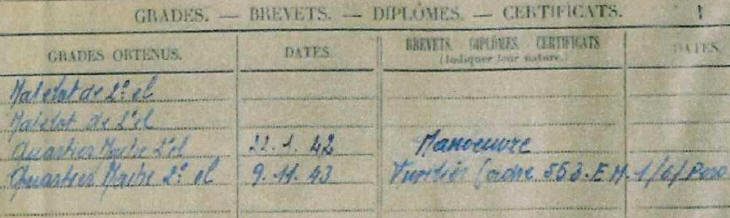 GRADES. — BREVETS. — DIPLÔMES. — CERTIFICATS.
GRADES OBTENUS. DATES. BREVETS. DIPLÔMES. CERTIFICATS DATES.
(Indiquer leur nature.)
Matelot de 2e cl
Matelot de 2e cl
Quartier Maître 2e cl 22.1.42 Manoeuvre
Quartier Maître 2e cl 9.11.43 553.E.M.